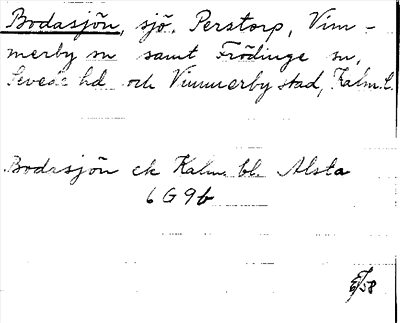 Bodasjön, sjö, Perstorp, Vim-
merby sn samt Frödinge sn,
Sevede hd och Vimmerby stad, Kalm. l.
Bodasjön ek Kalm bl. Alsta
6 G 9 b